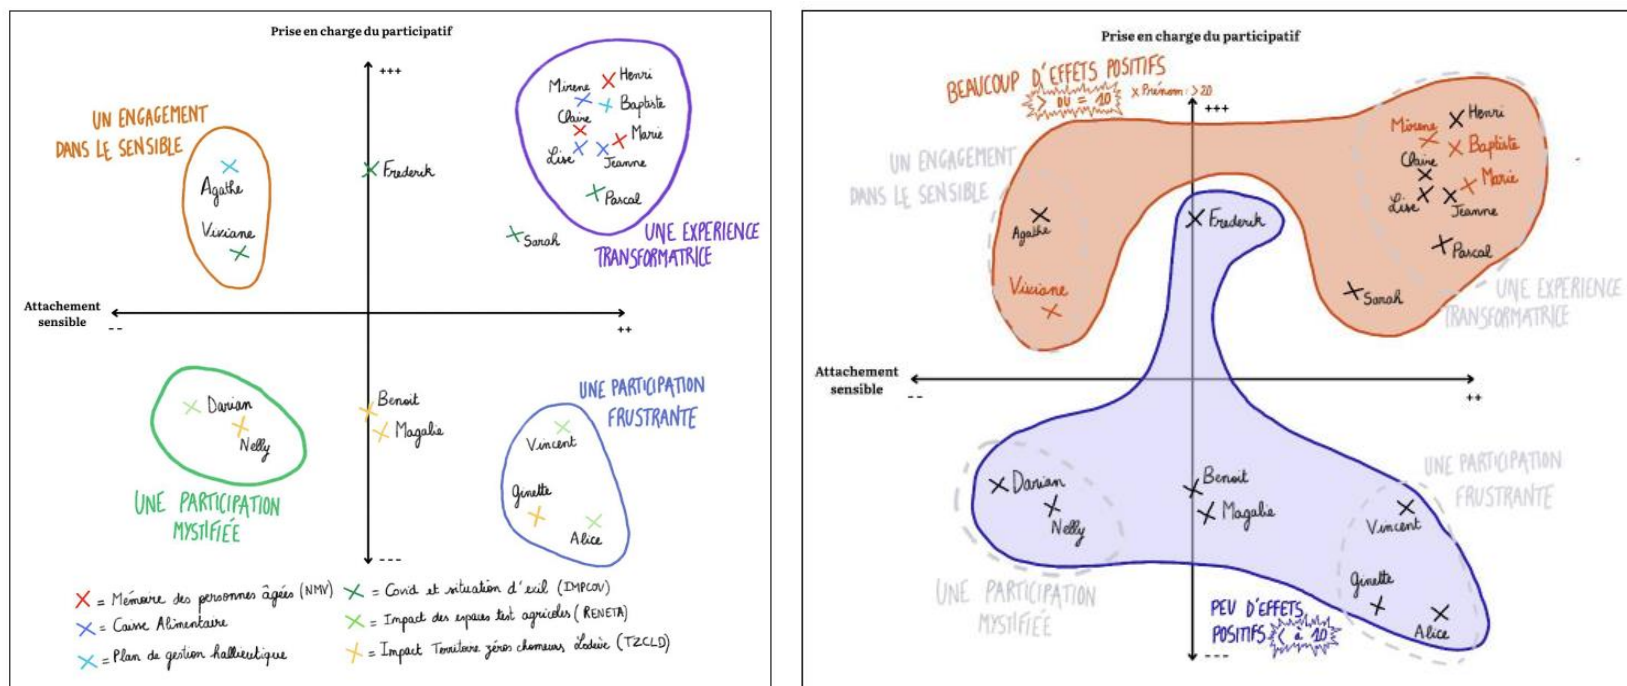 Prise en charge du participatif
+++
UN ENGAGEMENT
DANS LE SENSIBLE
Agathe
Viviane
Frederik
Mirene
Henri
Baptiste
Claire
Marie
Lise
Jeanne
Pascal
Sarah
UNE EXPERIENCE
TRANSFORMATRICE
Attachement
sensible
--
++
Darian
Nelly
UNE PARTICIPATION
MYSTIFIÉE
Benoit
Magalie
UNE PARTICIPATION
FRUSTRANTE
Vincent
Ginette
Alice
---
X = Mémoire des personnes âgées (NMV)
X = Caisse Alimentaire
X = Plan de gestion hallieutique
X = Covid et situation d'exil (IMPCOV)
X = Impact des espaces test agricoles (RENETA)
X = Impact Territoire zéros chomeurs Lodève (TZCLD)
Prise en charge du participatif
BEAUCOUP D'EFFETS POSITIFS
> OU = 10
x Prénom : > 20
+++
UN ENGAGEMENT
DANS LE SENSIBLE
Agathe
Viviane
Frederik
Henri
Mirene
Baptiste
Claire
Marie
Lise
Jeanne
Pascal
Sarah
UNE EXPERIENCE
TRANSFORMATRICE
Attachement
sensible
--
++
Darian
Nelly
UNE PARTICIPATION
MYSTIFIÉE
Benoit
Magalie
UNE PARTICIPATION
FRUSTRANTE
Vincent
Ginette
Alice
PEU D'EFFETS
POSITIFS < à 10
---